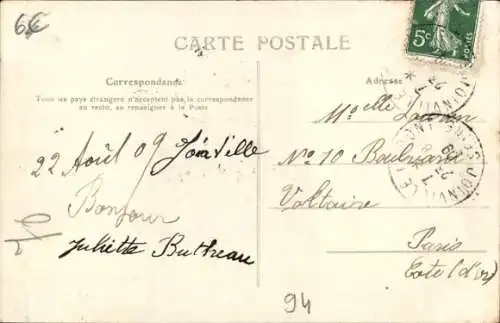 6€
5c
CARTE POSTALE
Correspondance
Tous les pays étrangers n'acceptent pas la correspondance
au recto, se renseigner à la Poste
Adresse
22 Août 09 Joinville
Bonjour
Juliette Butheau
Melle
No 10 Boulevard
Voltaire
Paris
Cote (d'or)
94